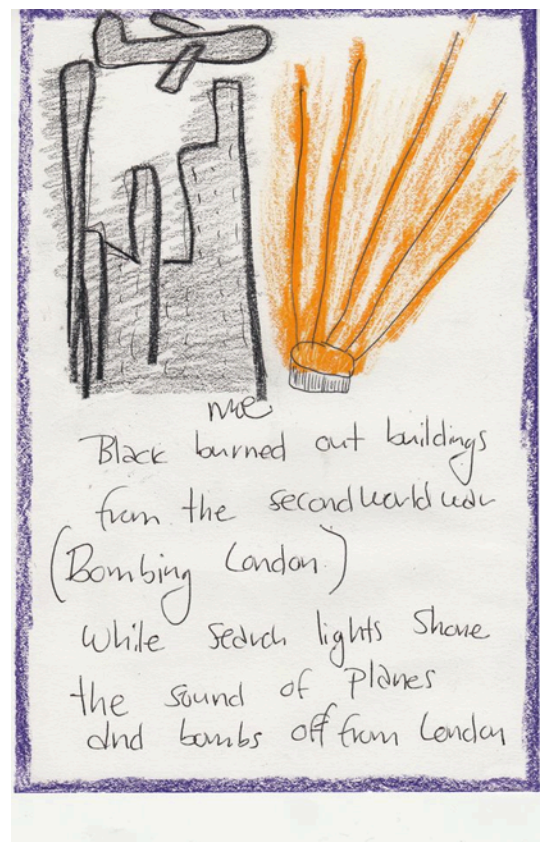 Black burned out buildings
from the second world war
(Bombing London)
While search lights shone
the sound of planes
and bombs off from London